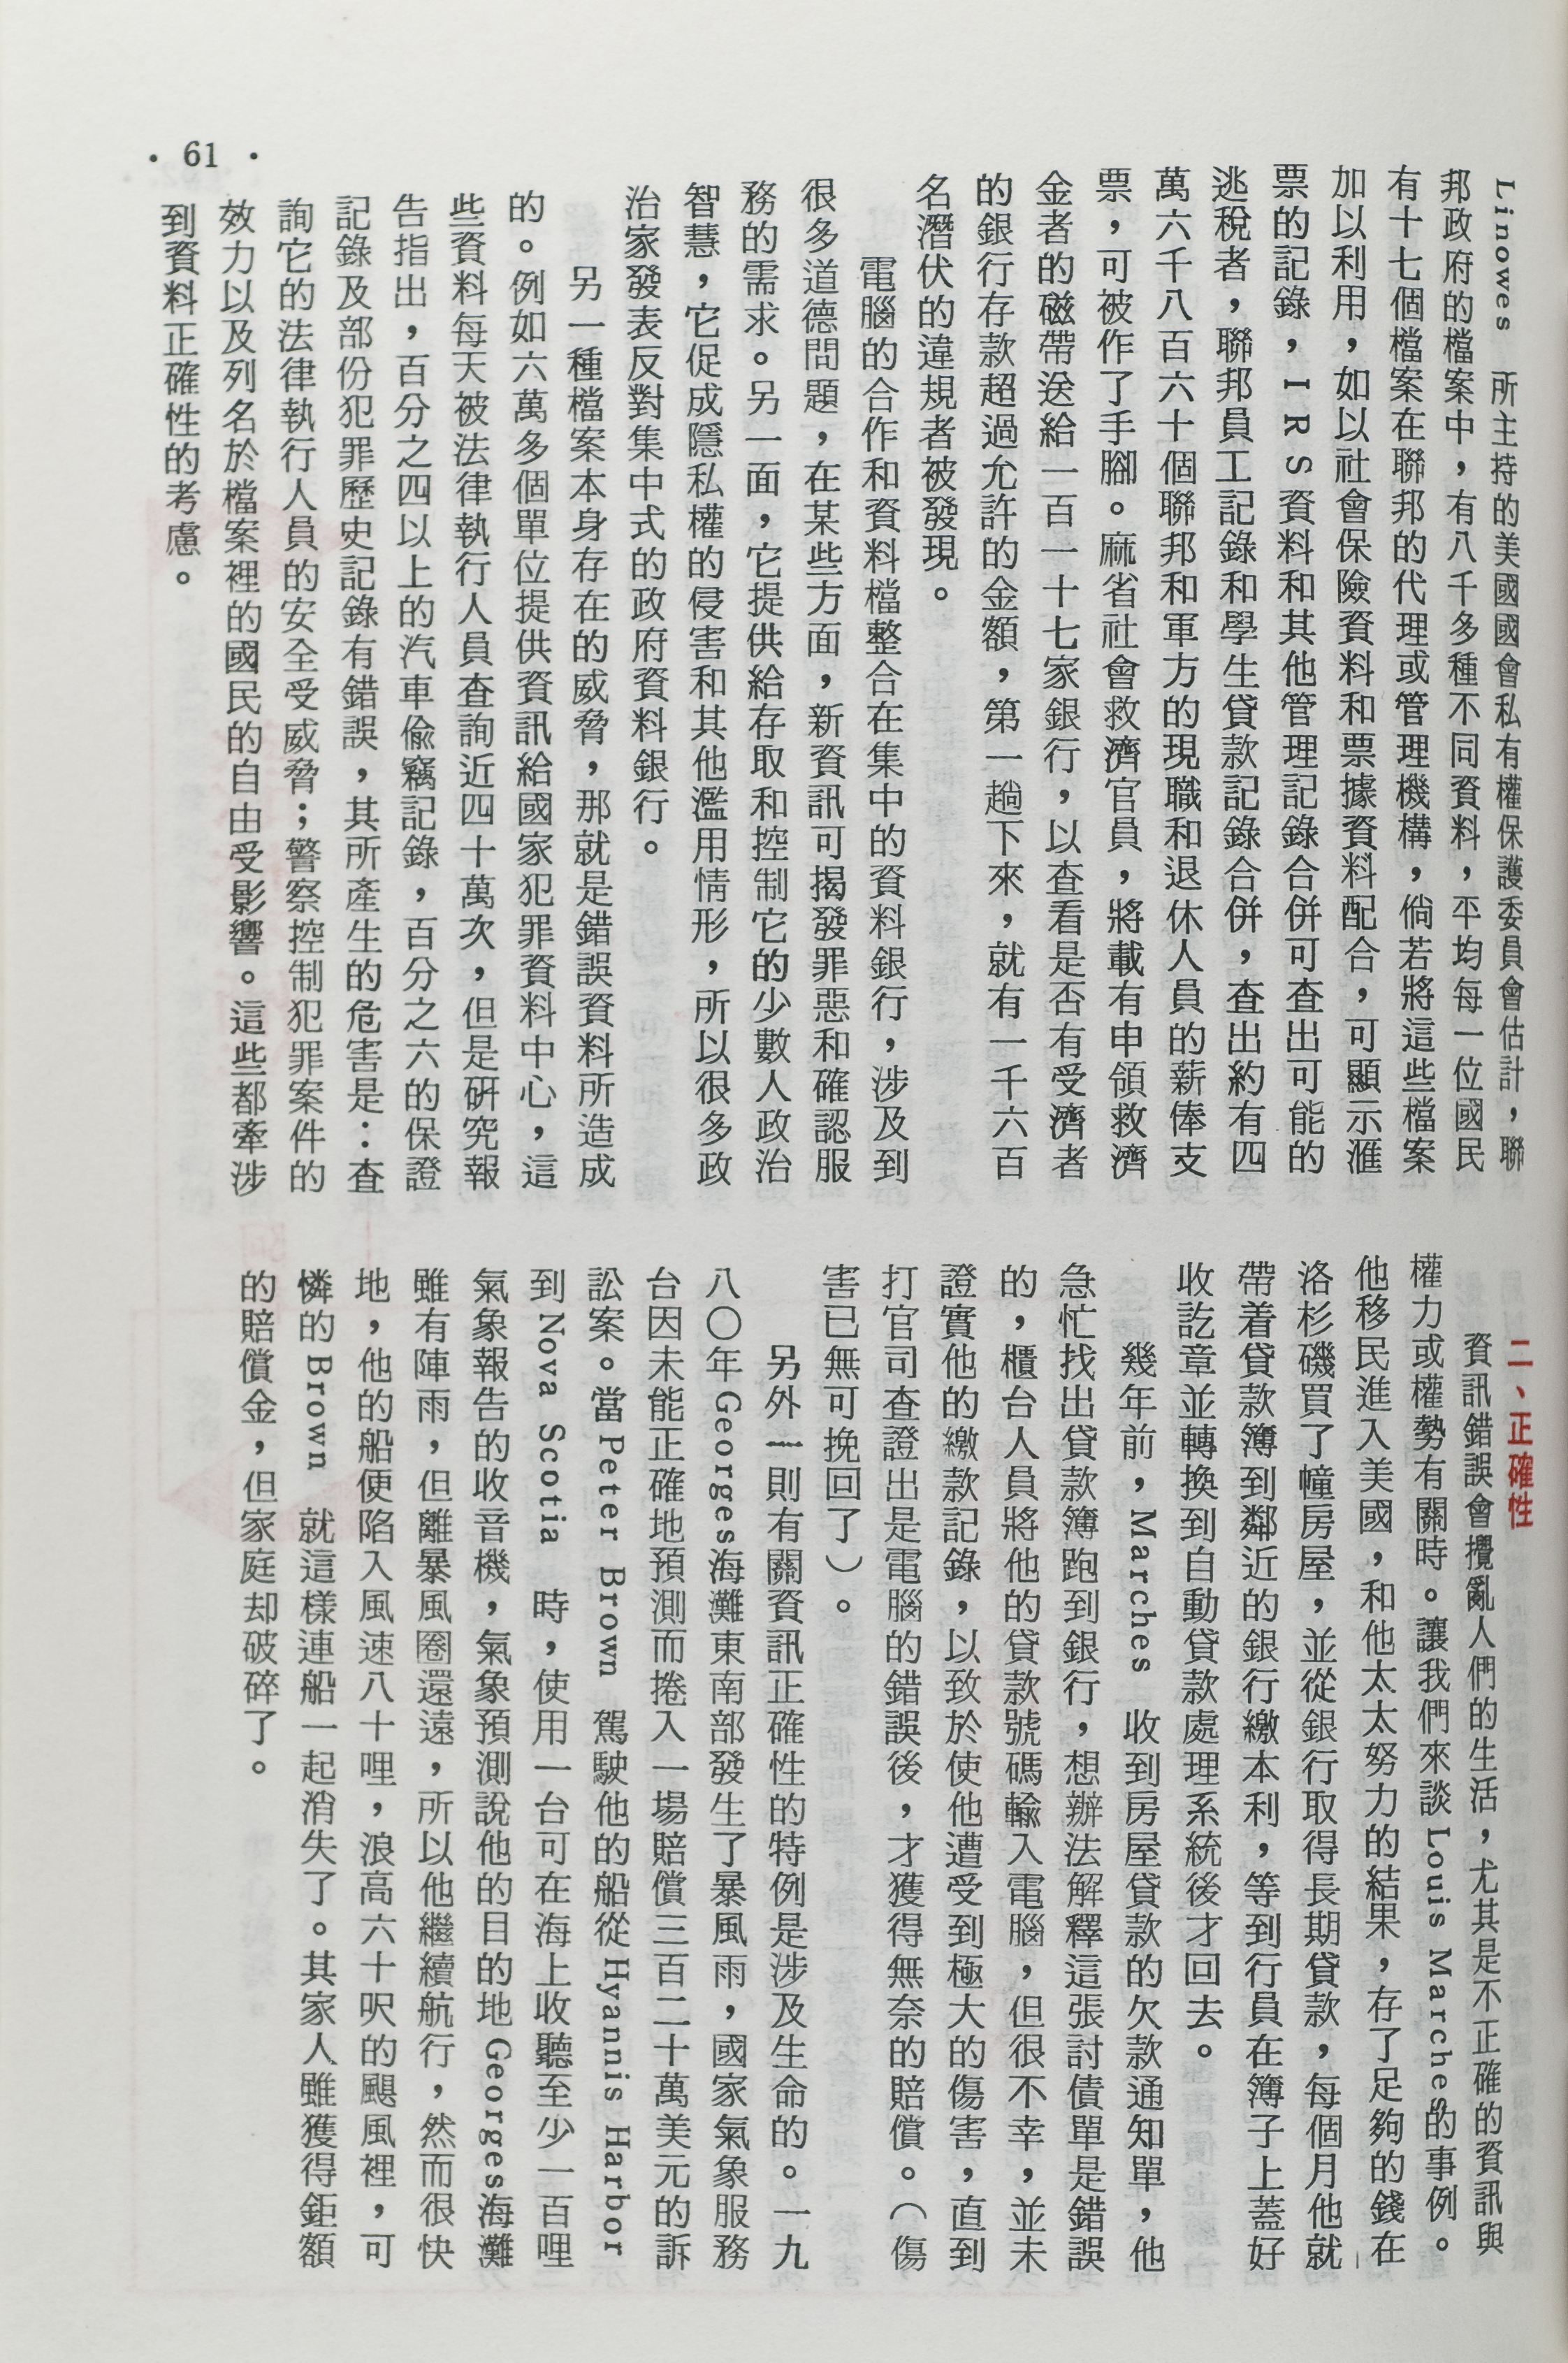 Linowes 所主持的美國國會私有權保護委員會估計，聯
邦政府的檔案中，有八千多種不同資料，平均每一位國民
有十七個檔案在聯邦的代理或管理機構，倘若將這些檔案
加以利用，如以社會保險資料和票據資料配合，可顯示滙
票的記錄，IRS資料和其他管理記錄合併可查出可能的
逃稅者，聯邦員工記錄和學生貸款記錄合併，查出約有四
萬六千八百六十個聯邦和軍方的現職和退休人員的薪俸支
票，可被作了手腳。麻省社會救濟官員，將載有申領救濟
金者的磁帶送給一百一十七家銀行，以查看是否有受濟者
的銀行存款超過允許的金額，第一趟下來，就有一千六百
名潛伏的違規者被發現。
電腦的合作和資料檔整合在集中的資料銀行，涉及到
很多道德問題，在某些方面，新資訊可揭發罪惡和確認服
務的需求。另一面，它提供給存取和控制它的少數人政治
智慧，它促成隱私權的侵害和其他濫用情形，所以很多政
治家發表反對集中式的政府資料銀行。
另一種檔案本身存在的威脅，那就是錯誤資料所造成
的。例如六萬多個單位提供資訊給國家犯罪資料中心，這
些資料每天被法律執行人員查詢近四十萬次，但是研究報
告指出，百分之四以上的汽車偷竊記錄，百分之六的保證
記錄及部份犯罪歷史記錄有錯誤，其所產生的危害是：查
詢它的法律執行人員的安全受威脅；警察控制犯罪案件的
效力以及列名於檔案裡的國民的自由受影響。這些都牽涉
到資料正確性的考慮。
二、正確性
資訊錯誤會攪亂人們的生活，尤其是不正確的資訊與
權力或權勢有關時。讓我們來談Louis Marches的事例。
他移民進入美國，和他太太努力的結果，存了足夠的錢在
洛杉磯買了幢房屋，並從銀行取得長期貸款，每個月他就
帶着貸款簿到鄰近的銀行繳本利，等到行員在簿子上蓋好
收訖章並轉換到自動貸款處理系統後才回去。
幾年前，Marches 收到房屋貸款的欠款通知單，他
急忙找出貸款簿跑到銀行，想辦法解釋這張討債單是錯誤
的，櫃台人員將他的貸款號碼輸入電腦，但很不幸，並未
證實他的繳款記錄，以致於使他遭受到極大的傷害，直到
打官司查證出是電腦的錯誤後，才獲得無奈的賠償。（傷
害已無可挽回了）。
另外一則有關資訊正確性的特例是涉及生命的。一九
八〇年Georges海灘東南部發生了暴風雨，國家氣象服務
台因未能正確地預測而捲入一場賠償三百二十萬美元的訴
訟案。當Peter Brown 駕駛他的船從Hyannis Harbor
到Nova Scotia 時，使用一台可在海上收聽至少一百哩
氣象報告的收音機，氣象預測說他的目的地Georges海灘
雖有陣雨，但離暴風圈還遠，所以他繼續航行，然而很快
地，他的船便陷入風速八十哩，浪高六十呎的颶風裡，可
憐的Brown 就這樣連船一起消失了。其家人雖獲得鉅額
的賠償金，但家庭却破碎了。
• 61 •